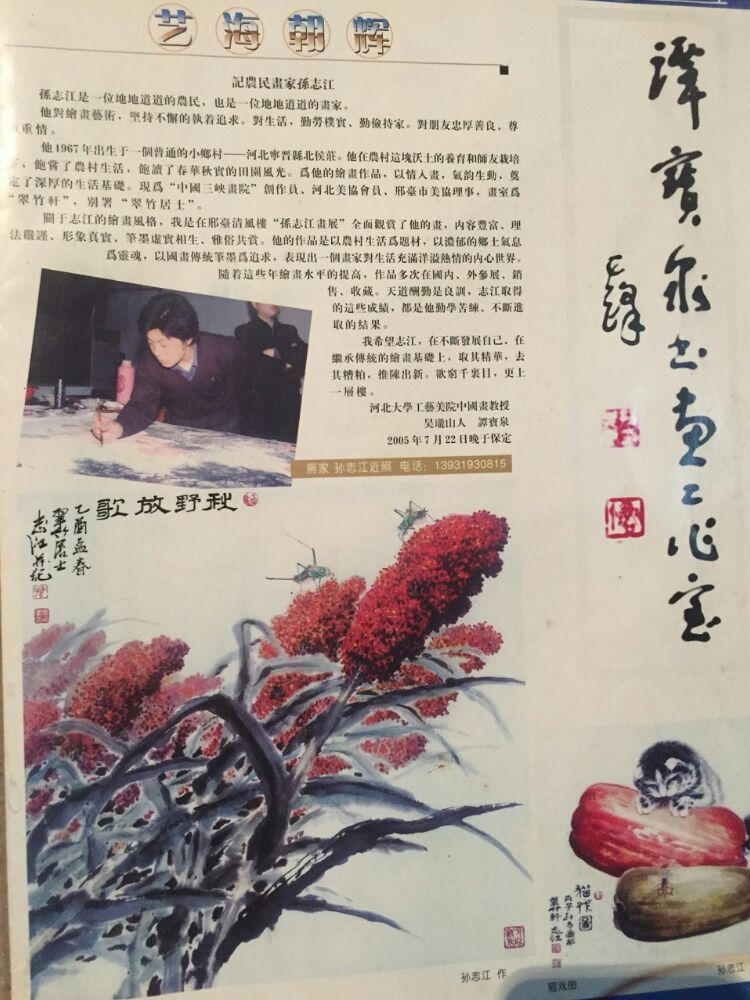 艺海朝辉
記農民畫家孫志江
孫志江是一位地地道道的農民，也是一位地地道道的畫家。
他對繪畫藝術，堅持不懈的執着追求。對生活，勤勞樸實、勤儉持家。對朋友忠厚善良、尊
重情。
他1967年出生于一個普通的小鄉村——河北寧晋縣北侯莊。他在農村這塊沃土的養育和師友栽培
，飽嘗了農村生活，飽讀了春華秋實的田園風光。爲他的繪畫作品，以情人畫，氣韵生動，奠
定了深厚的生活基礎。現爲“中國三峽畫院”創作員、河北美協會員、邢臺市美協理事，畫室爲
“翠竹軒”，别署“翠竹居士”。
關于志江的繪畫風格，我是在邢臺清風樓“孫志江畫展”全面觀賞了他的畫，内容豐富、理
法嚴謹、形象真實、筆墨虚實相生、雅俗共賞。他的作品是以農村生活爲題材，以濃郁的鄉土氣息
爲靈魂，以國畫傳統筆墨爲追求，表現出一個畫家對生活充滿洋溢熱情的内心世界。
隨着這些年繪畫水平的提高，作品多次在國内、外參展、銷
售、收藏。天道酬勤是良訓，志江取得
的這些成績，都是他勤學苦練、不斷進
取的結果。
我希望志江，在不斷發展自己、在
繼承傳統的繪畫基礎上，取其精華，去
其糟粕，推陳出新。欲窮千裏目，更上
一層樓。
河北大學工藝美院中國畫教授
吴瓏山人 譚寶泉
2005年7月22日晚于保定
画家 孙志江近照 电话：13931930815
秋野放歌
乙酉孟春
翠竹居士
志江并記
孙志江 作
譚寶泉书画工作室
猫戏圖
翠竹軒 志江
猫戏图
孙志江